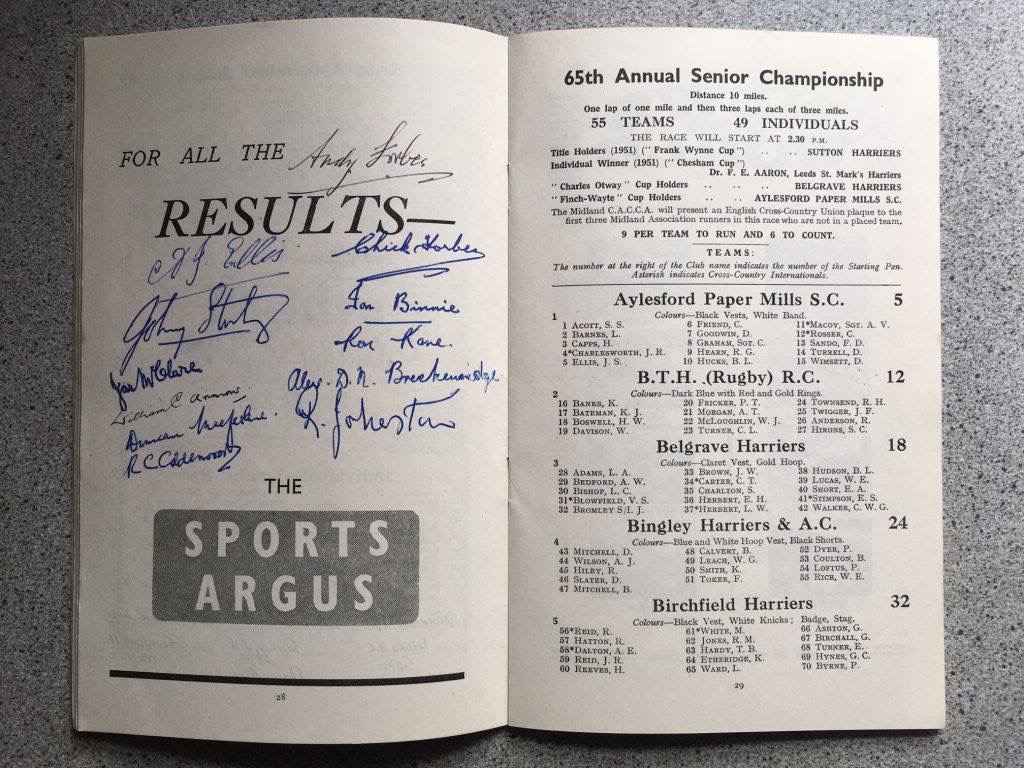 FOR ALL THE Andy Forbes
RESULTS—
Ellis Chick Forbes
Johnny Ian Binnie
Ron Kane.
McClure
Alex. D. N. Breckenridge
William C.
Duncan
R. Johnston
R C Calderwood
THE
SPORTS
ARGUS
28
65th Annual Senior Championship
Distance 10 miles.
One lap of one mile and then three laps each of three miles.
55 TEAMS 49 INDIVIDUALS
THE RACE WILL START AT 2.30 P.M.
Title Holders (1951) (" Frank Wynne Cup ") .. .. SUTTON HARRIERS
Individual Winner (1951) (" Chesham Cup ")
Dr. F. E. AARON, Leeds St. Mark's Harriers
" Charles Otway " Cup Holders .. .. .. BELGRAVE HARRIERS
" Finch-Wayte " Cup Holders .. .. AYLESFORD PAPER MILLS S.C.
The Midland C.A.C.C.A. will present an English Cross-Country Union plaque to the
first three Midland Association runners in this race who are not in a placed team.
9 PER TEAM TO RUN AND 6 TO COUNT.
TEAMS:
The number at the right of the Club name indicates the number of the Starting Pen.
Asterisk indicates Cross-Country Internationals.
Aylesford Paper Mills S.C. 5
1 Colours—Black Vests, White Band.
1 ACOTT, S. S. 6 FRIEND, C. 11*MACOY, SGT. A. V.
2 BARNES, L. 7 GOODWIN, D. 12*ROSSER, C.
3 CAPPS, H. 8 GRAHAM, SGT. C. 13 SANDO, F. D.
4*CHARLESWORTH, J. R. 9 HEARN, R. G. 14 TURRELL, D.
5 ELLIS, J. S. 10 HUCKS, B. L. 15 WIMSETT, D.
B.T.H. (Rugby) R.C. 12
2 Colours—Dark Blue with Red and Gold Rings.
16 BANKS, K. 20 FRICKER, P. T. 24 TOWNSEND, R. H.
17 BATEMAN, K. J. 21 MORGAN, A. T. 25 TWIGGER, J. F.
18 BOSWELL, H. W. 22 MCLOUGHLIN, W. J. 26 ANDERSON, R.
19 DAVISON, W. 23 TURNER, C. L. 27 HIRONS, S. C.
Belgrave Harriers 18
3 Colours—Claret Vest, Gold Hoop.
28 ADAMS, L. A. 33 BROWN, J. W. 38 HUDSON, B. L.
29 BEDFORD, A. W. 34*CARTER, C. T. 39 LUCAS, W. E.
30 BISHOP, L. C. 35 CHARLTON, S. 40 SHORT, E. A.
31*BLOWFIELD, V. S. 36 HERBERT, E. H. 41*STIMPSON, E. S.
32 BROMLEY S/I. J. 37*HERBERT, L. W. 42 WALKER, C. W. G.
Bingley Harriers & A.C. 24
4 Colours—Blue and White Hoop Vest, Black Shorts.
43 MITCHELL, D. 48 CALVERT, B. 52 DYER, P.
44 WILSON, A. J. 49 LEACH, W. G. 53 COULTON, B.
45 HILEY, R. 50 SMITH, K. 54 LOFTUS, P.
46 SLATER, D. 51 TOKER, F. 55 RICE, W. E.
47 MITCHELL, B.
Birchfield Harriers 32
5 Colours—Black Vest, White Knicks; Badge, Stag.
56*REID, R. 61*WHITE, M. 66 ASHTON, G.
57 HATTON, R. 62 JONES, R. M. 67 BIRCHALL, G.
58*DALTON, A. E. 63 HARDY, T. B. 68 TURNER, E.
59 REID, J. R. 64 ETHERIDGE, K. 69 HYNES, G. C.
60 REEVES, H. 65 WARD, L. 70 BYRNE, P.
29